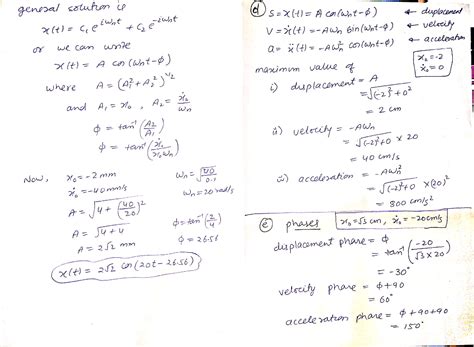 general solution is
x(t) = C₁ e^{iωₙt} + C₂ e^{-iωₙt}
or we can write
x(t) = A cos(ωₙt-ϕ)
where A = (A₁² + A₂²)^{1/2}
and A₁ = x₀, A₂ = ẋ₀/ωₙ
ϕ = tan⁻¹(A₂/A₁)
ϕ = tan⁻¹(ẋ₀/x₀ωₙ)
Now, x₀ = -2 mm ωₙ = √(40/0.1)
ẋ₀ = -40 mm/s ωₙ = 20 rad/s
A = √(4 + (40/20)²)
A = √(4+4) ϕ = tan⁻¹(2/4)
A = 2√2 mm ϕ = 26.56
x(t) = 2√2 cos(20t - 26.56)
(d) S = x(t) = A cos(ωₙt-ϕ) ← displacement
V = ẋ(t) = -Aωₙ sin(ωₙt-ϕ) ← velocity
a = ẍ(t) = -Aωₙ² cos(ωₙt-ϕ) ← acceleration
maximum value of x₀ = -2
ẋ₀ = 0
i) displacement = A
= √((-2)² + 0²)
= 2 cm
ii) velocity = -Aωₙ
= √((-2)²+0) × 20
= 40 cm/s
iii) acceleration = -Aωₙ²
= √((-2)²+0) × (20)²
= 800 cm/s²
(e) phases x₀ = √3 cm, ẋ₀ = -20 cm/s
displacement phase = ϕ
= tan⁻¹(-20/√3 × 20)
= -30°
velocity phase = ϕ + 90
= 60°
acceleration phase = ϕ + 90 + 90
= 150°